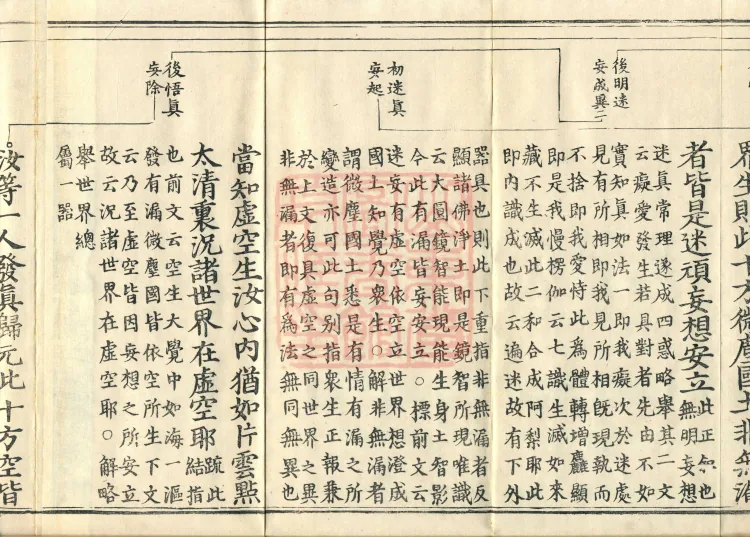 界生則此十方微塵國土非無漏
者皆是迷頑妄想安立此正無也
無明妄想
迷真常理遂成四惑略舉其二文
云癡愛發生若具對者先由不如
實知真如法一即我癡次於迷處
見有所相即我見所相旣現執而
不捨即我愛恃此為體轉增麤顯
即是我慢楞伽云七識生滅如來
藏不生滅此二和合成阿梨耶此
即内識成也故云遍迷故有下外
器具也則此下重指非無漏者反
顯諸佛淨土即是鏡智所現唯識
云大圓鏡智能現能生身土智影
今此有漏皆妄安立○標前文云
迷妄有虛空依空立世界想澄成
國土知覺乃衆生○解非無漏者
謂微塵國土悉是有情有漏之所
變造亦可此句别指衆生正報兼
於上文復具虛空之同世界之異
非無漏者即有為法無同無異也
後明迷
妄成異二
初迷真
妄起
後悟真
妄除
當知虛空生汝心内猶如片雲點
太清裏況諸世界在虛空耶疏此
結指
也前文云空生大覺中如海一漚
發有漏微塵國皆依空所生下文
云乃至虛空皆因妄想之所安立
故云況諸世界在虛空耶○解略
舉世界總
屬一器
汝等一人發真歸元此十方空皆